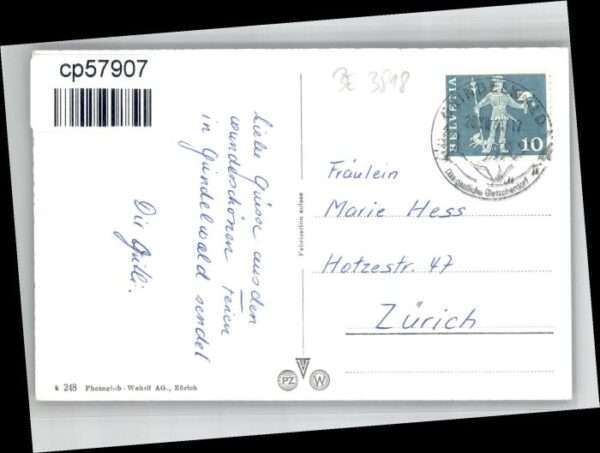 cp57907
BE 3518
HELVETIA
10
GRINDELWALD
Das gastliche Gletscherdorf
Liebe Grüsse aus den
wunderschönen Ferien
in Grindelwald sendet
Dir
Fräulein
Marie Hess
Hotzestr. 47
Zürich
PZ
W
k 248 Photoglob-Wehrli AG., Zürich